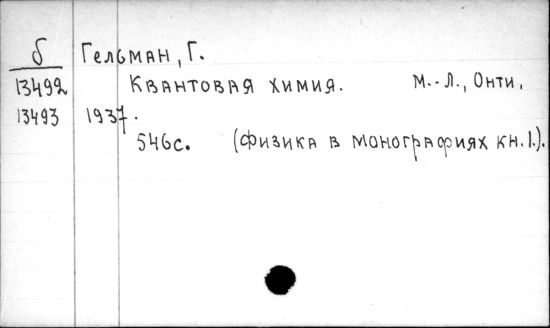 б Гельман, Г.
13492 Квантовая химия. М.-Л., Онти,
13493 1937.
546с. (Физика в монографиях кн.1.).